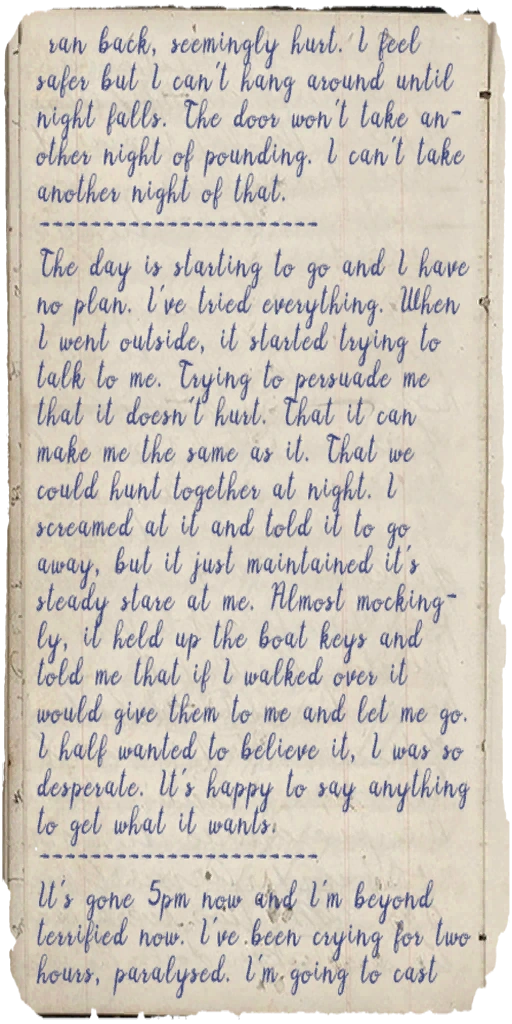 ran back, seemingly hurt. I feel
safer but I can't hang around until
night falls. The door won't take an-
other night of pounding. I can't take
another night of that.
----------------------
The day is starting to go and I have
no plan. I've tried everything. When
I went outside, it started trying to
talk to me. Trying to persuade me
that it doesn't hurt. That it can
make me the same as it. That we
could hunt together at night. I
screamed at it and told it to go
away, but it just maintained it's
steady stare at me. Almost mocking-
ly, it held up the boat keys and
told me that if I walked over it
would give them to me and let me go.
I half wanted to believe it, I was so
desperate. It's happy to say anything
to get what it wants.
----------------------
It's gone 5pm now and I'm beyond
terrified now. I've been crying for two
hours, paralysed. I'm going to cast